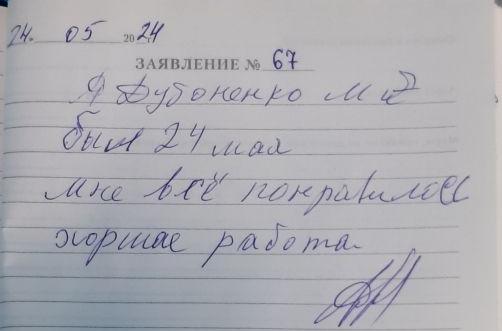 24. 05 2024
ЗАЯВЛЕНИЕ № 67
Я Дубоненко М
был 24 мая
мне всё понравилось
хоршае работа